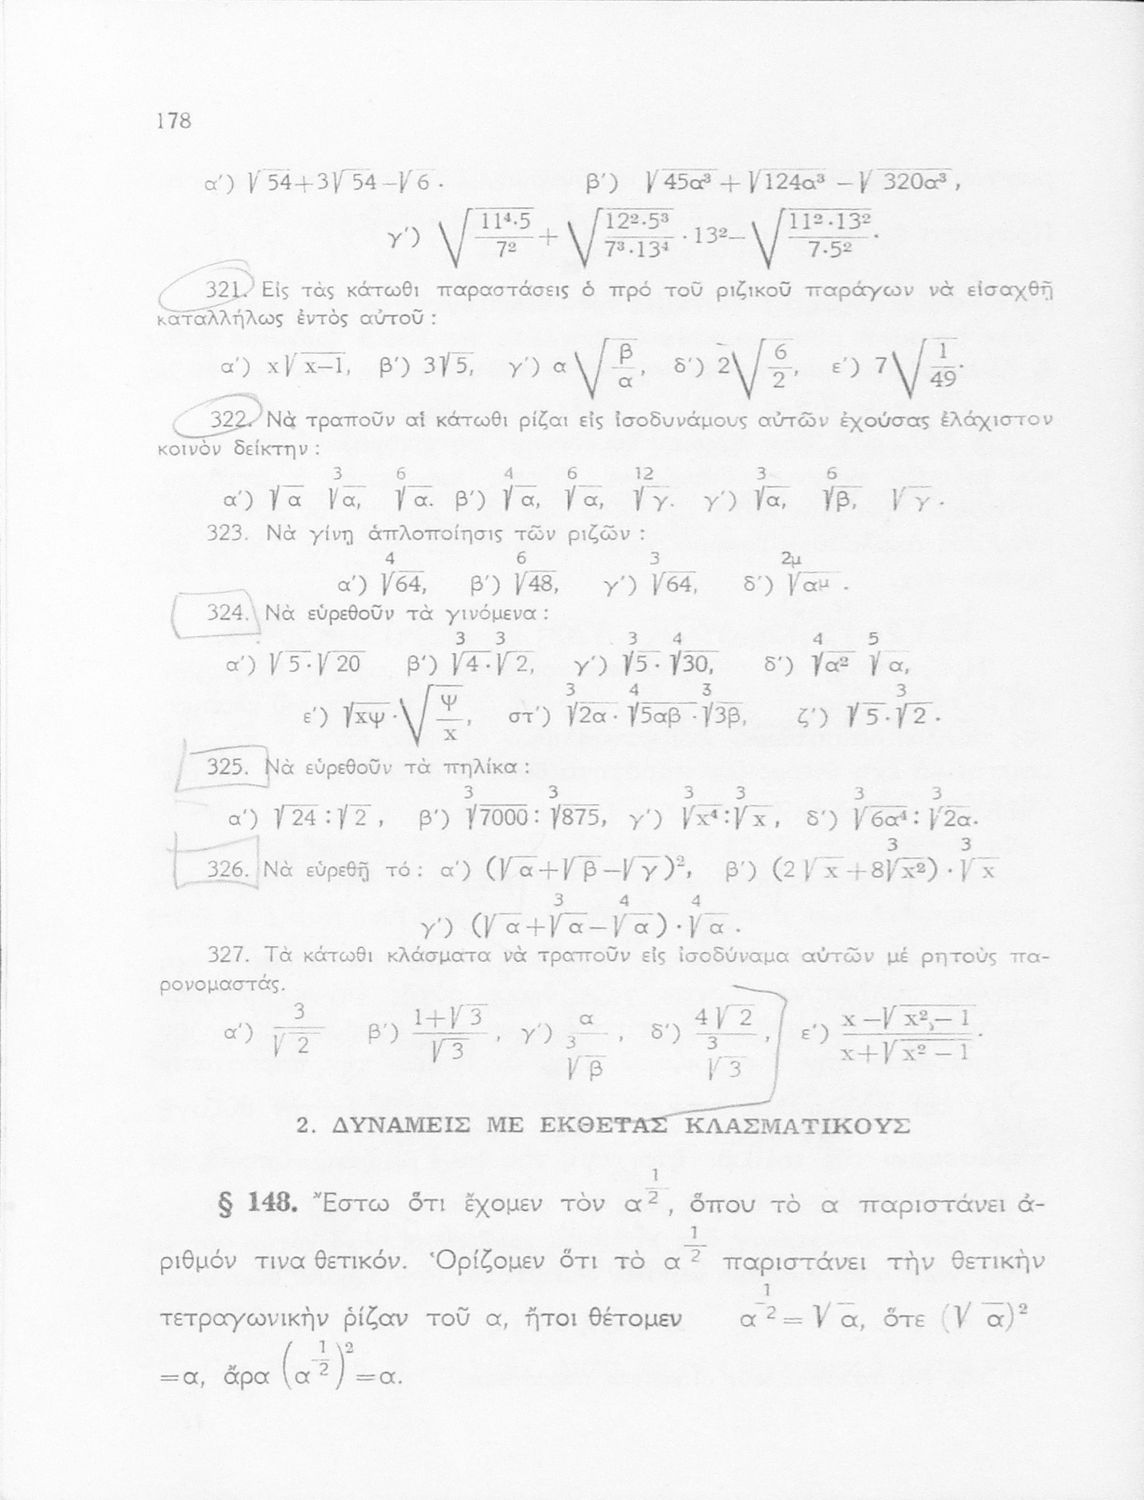 178
α′) √54+3√54–√6. β′) √45α³+√124α³–√320α³,
γ′) √(11⁴·5/7²)+√(12²·5³/7³·13⁴)·13²–√(11²·13²/7·5²).
321. Εἰς τὰς κάτωθι παραστάσεις ὁ πρό τοῦ ριζικοῦ παράγων νὰ εἰσαχθῇ
καταλλήλως ἐντὸς αὐτοῦ :
α′) x√x–1, β′) 3√5, γ′) α√(β/α), δ′) 2√(6/2), ε′) 7√(1/49).
322. Νὰ τραποῦν αἱ κάτωθι ρίζαι εἰς ἰσοδυνάμους αὐτῶν ἐχούσας ἐλάχιστον
κοινὸν δείκτην :
α′) √α ³√α, ⁶√α. β′) ⁴√α, ⁶√α, ¹²√γ. γ′) ³√α, ⁶√β, √γ.
323. Νὰ γίνῃ ἁπλοποίησις τῶν ριζῶν :
α′) ⁴√64, β′) ⁶√48, γ′) ³√64, δ′) ²ᵘ√αᵘ.
324. Νὰ εὑρεθοῦν τὰ γινόμενα :
α′) √5·√20 β′) ³√4·³√2, γ′) ³√5·⁴√30, δ′) ⁴√α² ⁵√α,
ε′) √xψ·√(ψ/x), στ′) ³√2α·⁴√5αβ·³√3β, ζ′) √5·³√2.
325. Νὰ εὑρεθοῦν τὰ πηλίκα :
α′) √24:√2, β′) ³√7000:³√875, γ′) ³√x⁴:³√x, δ′) ³√6α⁴:³√2α.
326. Νὰ εὑρεθῇ τό : α′) (√α+√β–√γ)², β′) (2√x+8³√x²)·³√x
γ′) (√α+³√α–⁴√α)·⁴√α.
327. Τὰ κάτωθι κλάσματα νὰ τραποῦν εἰς ἰσοδύναμα αὐτῶν μέ ρητοὺς πα-
ρονομαστάς.
α′) 3/√2 β′) 1+√3/√3, γ′) α/³√β, δ′) 4√2/³√3, ε′) x–√x²–1/x+√x²–1.
2. ΔΥΝΑΜΕΙΣ ΜΕ ΕΚΘΕΤΑΣ ΚΛΑΣΜΑΤΙΚΟΥΣ
§ 148. Ἔστω ὅτι ἔχομεν τὸν α^1/2, ὅπου τὸ α παριστάνει ἀ-
ριθμόν τινα θετικόν. Ὁρίζομεν ὅτι τὸ α^1/2 παριστάνει τὴν θετικὴν
τετραγωνικὴν ῥίζαν τοῦ α, ἤτοι θέτομεν α^1/2=√α, ὅτε (√α)²
=α, ἄρα (α^1/2)²=α.